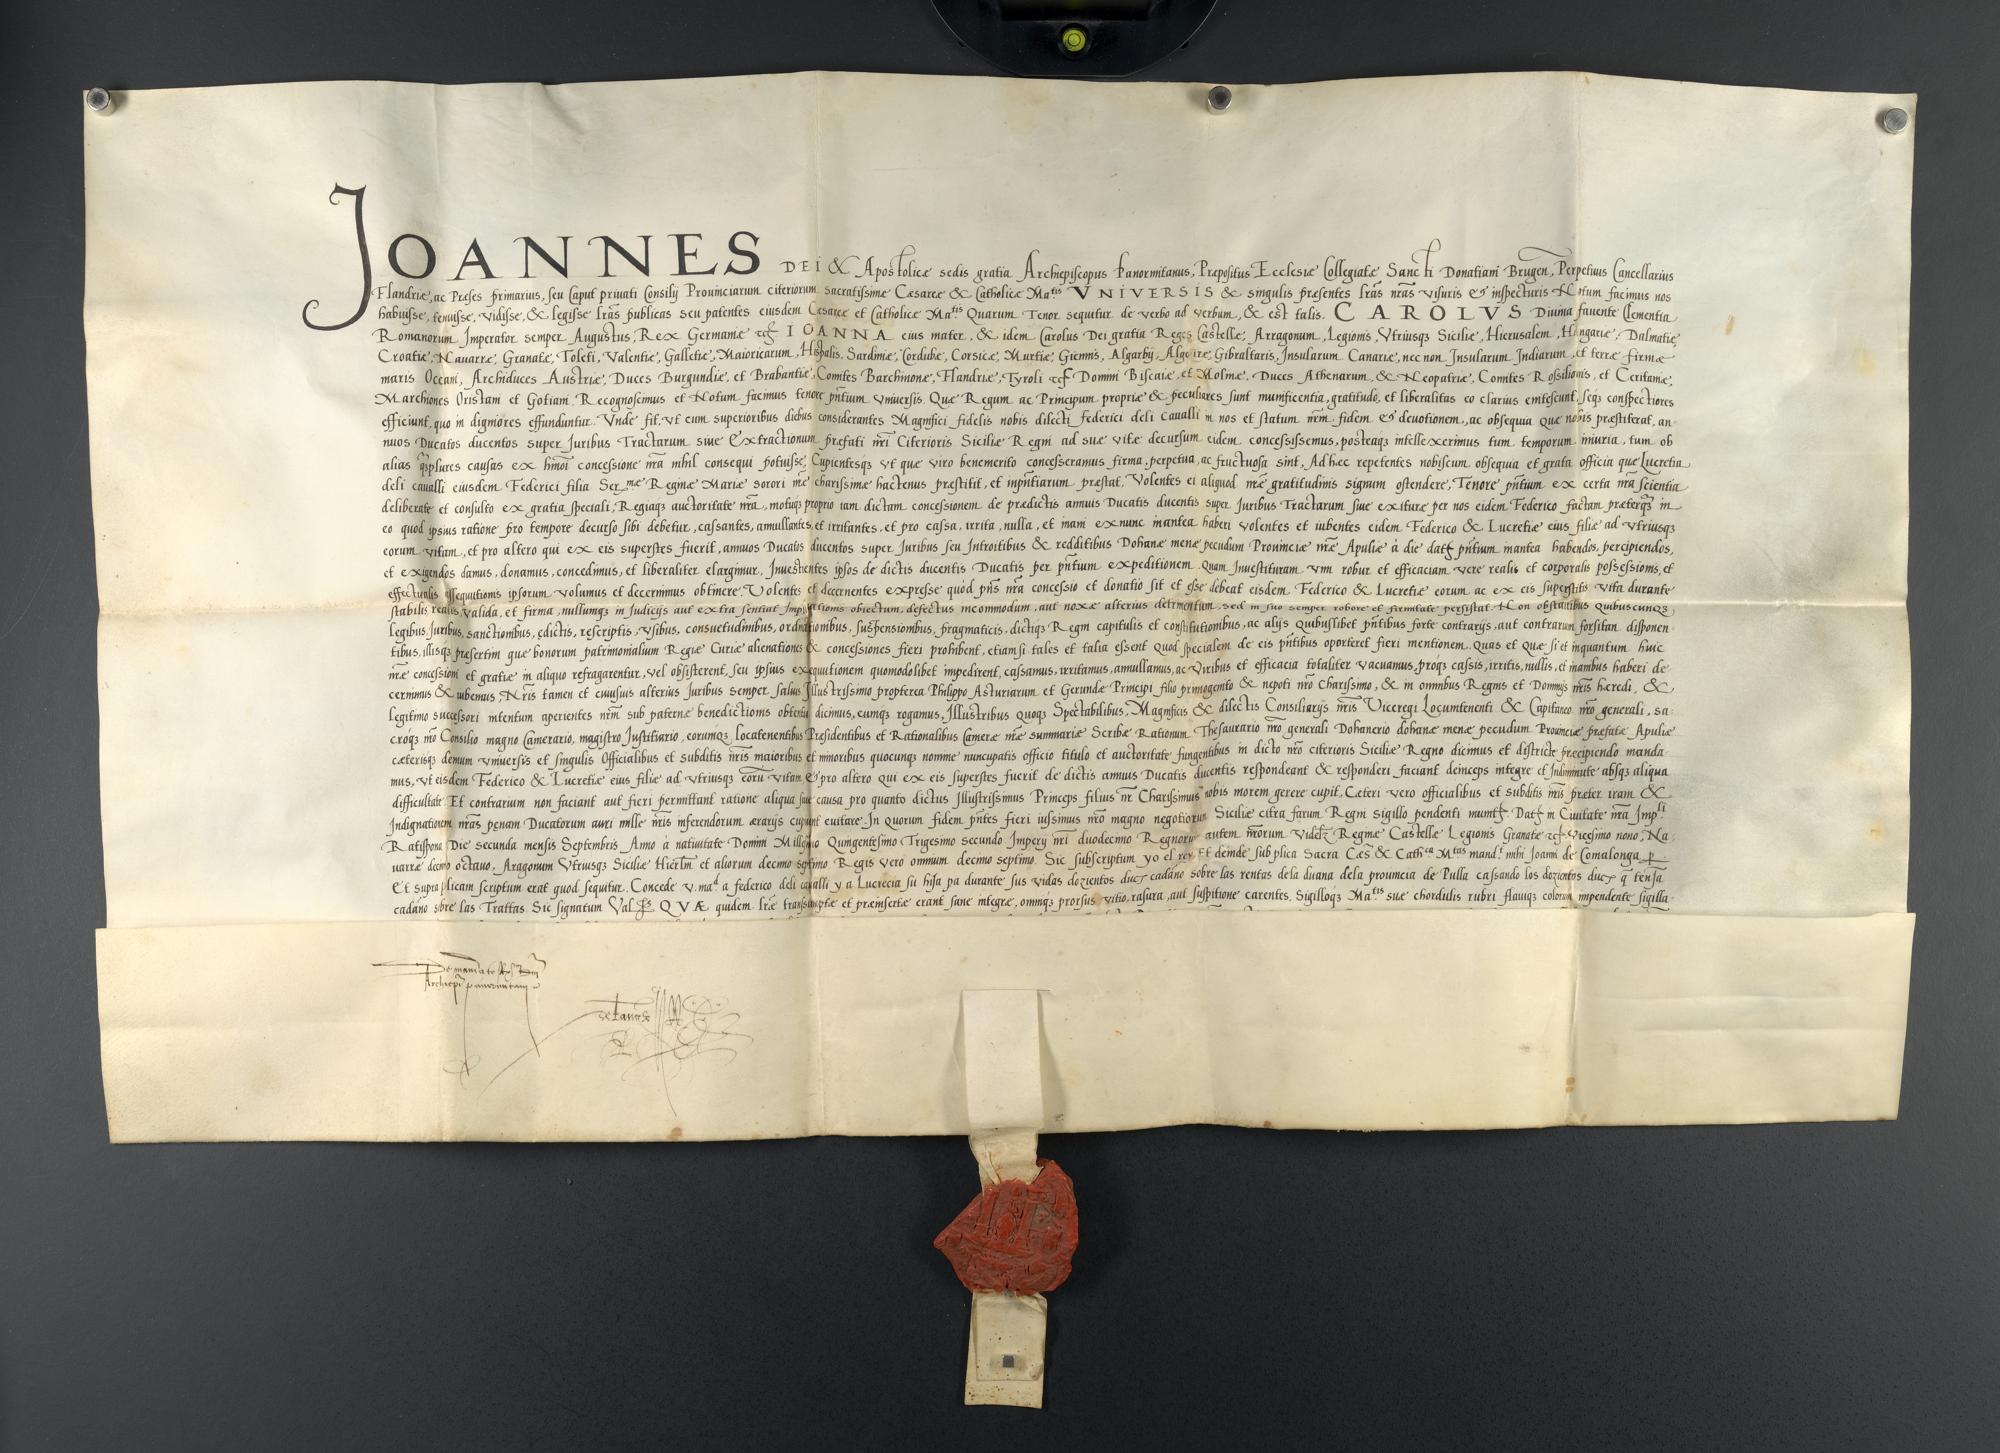 JOANNES DEI & Apostolicæ sedis gratia Archiepiscopus Panormitanus, Præpositus Ecclesiæ Collegiatæ Sancti Donatiani Brugen, Perpetuus Cancellarius
Flandriæ, ac Præses primarius, seu Caput priuati Consilij Prouinciarum citeriorum sacratissimæ Cæsareæ & Catholicæ Ma.tis VNIVERSIS & singulis præsentes lr̃as nr̃as visuris & inspecturis Notum facimus nos
habuisse, tenuisse, vidisse, & legisse lr̃as publicas seu patentes eiusdem Cesareæ et Catholicæ Ma.tis Quarum Tenor sequitur de verbo ad verbum, & est talis. CAROLVS Diuina fauente Clementia
Romanorum Imperator semper Augustus, Rex Germaniæ IOANNA eius mater, & idem Carolus Dei gratia Reges Castellæ, Arragonum, Legionis, Vtriusq; Siciliæ, Hierusalem, Hungariæ, Dalmatiæ
Croatiæ, Nauarræ, Granatæ, Toleti, Valentiæ, Galletiæ, Maioricarum, Hispalis, Sardiniæ, Cordubæ, Corsicæ, Murtiæ, Giennis, Algarbij, Algeziræ, Gibraltaris, Insularum Canariæ, nec non Insularum Indiarum, et terræ firmæ
maris Oceani, Archiduces Austriæ, Duces Burgundiæ, et Brabantiæ, Comites Barchinonæ, Flandriæ, Tyroli Domini Biscaiæ, et Molinæ, Duces Athenarum & Neopatriæ, Comites Rossilionis, et Ceritaniæ,
Marchiones Oristani et Gotiani Recognoscimus et Notum facimus tenore pn̄tium vniuersis. Quæ Regum ac Principum propriæ & peculiares sunt munificentia, gratitudo, et liberalitas eo clarius emitescunt, seq; conspectiores
efficiunt, quo in digniores effunduntur. Vnde fit, vt cum superioribus diebus considerantes Magnifici fidelis nobis dilecti Federici deli Caualli in nos et statum nr̄m fidem & deuotionem, ac obsequia que nobis præstiterat, an-
nuos Ducatos ducentos super Juribus Tractarum siue Extractionum præfati nr̄i Citerioris Siciliæ Regni ad suæ vitæ decursum eidem concessissemus, posteaq; intellexerimus tum temporum iniuria, tum ob
alias q̃plures causas ex hm̄oi concessione nr̄a nihil consequi potuisse, Cupientesq; vt que viro benemerito concesseramus firma, perpetua, ac fructuosa sint, Ad hæc repetentes nobiscum obsequia et grata officia que Lucretia
deli caualli eiusdem Federici filia Ser.mæ Reginæ Mariæ sorori nr̄æ charissimæ hactenus præstitit, et inpn̄tiarum præstat, Volentes ei aliquod nr̄æ gratitudinis signum ostendere, Tenore pn̄tium ex certa nr̄a scientia
deliberate et consulto ex gratia speciali, Regiaq; auctoritate nr̄a, motuq; proprio iam dictam concessionem de prædictis annuis Ducatis ducentis super Juribus Tractarum siue exituræ per nos eidem Federico factam præterq̃ in
eo quod ipsius ratione pro tempore decurso sibi debetur, cassantes, annullantes, et irritantes, et pro cassa, irrita, nulla, et inani ex nunc inantea haberi volentes et iubentes eidem Federico & Lucretiæ eius filiæ ad vtriusq;
eorum vitam, et pro altero qui ex eis superstes fuerit, annuos Ducatos ducentos super Juribus seu Introitibus & redditibus Dohanæ menæ pecudum Prouinciæ nr̄æ Apuliæ à die pn̄tium inantea habendos, percipiendos,
et exigendos damus, donamus, concedimus, et liberaliter elargimur, Inuestientes ipsos de dictis ducentis Ducatis per pn̄tium expeditionem. Quam Inuestituram vim robur et efficaciam veræ realis et corporalis possessionis, et
effectualis assequutionis ipsorum volumus et decernimus obtinere. Volentes et decernentes expresse quòd pn̄s nr̄a concessio et donatio sit et esse debeat eisdem Federico & Lucretiæ eorum ac ex eis superstitis vita durante
stabilis realis, valida, et firma, nullumq; in Judicijs aut extra sentiat impugnationis obiectum, defectus incommodum, aut noxæ alterius detrimentum, sed in suo semper robore et firmitate persistat. Non obstantibus Quibuscunq;
legibus, Juribus, sanctionibus, edictis, rescriptis, vsibus, consuetudinibus, ordinationibus, suspensionibus, pragmaticis, dictiq; Regni capitulis et constitutionibus, ac alijs quibuslibet pn̄tibus forte contrarijs, aut contrarium forsitan disponen-
tibus, illisq; præsertim quæ bonorum patrimonialium Regiæ Curiæ alienationes & concessiones fieri prohibent, etiamsi tales et talia essent Quod specialem de eis pn̄tibus oporteret fieri mentionem. Quas et Quæ si et inquantum huic
nr̄æ concessioni et gratiæ in aliquo refragarentur, vel obsisterent, seu ipsius exequutionem quomodolibet impedirent, cassamus, irritamus, annullamus, ac viribus et efficacia totaliter vacuamus, proq; cassis, irritis, nullis, et inanibus haberi de-
cernimus & iubemus, Nr̄is tamen et cuiusuis alterius Juribus semper saluis, Illustrissimo propterea Philippo Asturiarum et Gerundæ Principi filio primogenito & nepoti nr̄o Charissimo, & in omnibus Regnis et Dominijs nr̄is hæredi, &
legitimo successori intentum aperientes nr̄m sub paternæ benedictionis obtentu dicimus, eumq; rogamus, Illustribus quoq; Spectabilibus, Magnificis & dilectis Consiliarijs nr̄is Viceregi Locumtenenti & Capitaneo nr̄o generali, sa-
croq; nr̄o Consilio magno Camerario, magistro Justitiario, eorumq; Locatenentibus Præsidentibus et Rationalibus Cameræ nr̄æ summariæ Scribæ Rationum Thesaurario nr̄o generali Dohanerio dohanæ menæ pecudum Prouinciæ præfatæ Apuliæ
cæterisq; demum vniuersis et singulis Officialibus et subditis nr̄is maioribus et minoribus quocunq; nomine nuncupatis officio titulo et auctoritate fungentibus in dicto nr̄o citerioris Siciliæ Regno dicimus et districte præcipiendo manda-
mus, vt eisdem Federico & Lucretiæ eius filiæ ad vtriusq; eorū vitam & pro altero qui ex eis superstes fuerit de dictis annuis Ducatis ducentis respondeant & responderi faciant deinceps integre et Indiminute absq; aliqua
difficultate Et contrarium non faciant aut fieri permittant ratione aliqua siue causa pro quanto dictus Illustrissimus Princeps filius nr̄ Charissimus nobis morem gerere cupit, Cæteri vero officialibus et subditis nr̄is præter iram &
Indignationem nr̄as pęnam Ducatorum auri mille nr̄is inferendorum ærarijs cupiunt euitare. In quorum fidem pn̄tes fieri iussimus nr̄o magno negotiorum Siciliæ citra farum Regni sigillo pendenti Ciuitate nr̄a Imp.li
Ratispona Die secunda mensis Septembris Anno à natiuitate Domini Millesimo Quingentesimo Trigesimo secundo Imperij nr̄i duodecimo Regnorum autem nr̄orum Reginæ Castellæ Legionis Granatæ Vicesimo nono, Na-
uarræ decimo octauo, Aragonum Vtriusq; Siciliæ et aliorum decimo septimo Regis vero omnium decimo septimo. Sic subscriptum yo el rey Et deinde sub plica Sacra Cæs. & Cath.ca M.tas mand.t mihi Joanni de Comalonga
Et supra plicam scriptum erat quod sequitur. Concede v. ma.d a federico deli caualli y a Lucrecia su hija pa durante sus vidas dozientos duc. cadaño sobre las rentas dela duana dela prouincia de Pulla cassando los dozientos duc. q̃ tenia
cadaño sobre las Trattas Sic signatum Val. QVÆ quidem lr̄æ transsumptæ et præinsertæ erant sane integræ, omniq; prorsus vitio, rasura, aut suspitione carentes, Sigilloq; Ma.tis suæ chordulis rubri flauiq; colorum impendente sigilla-
De mandato
Archiepi panormitani